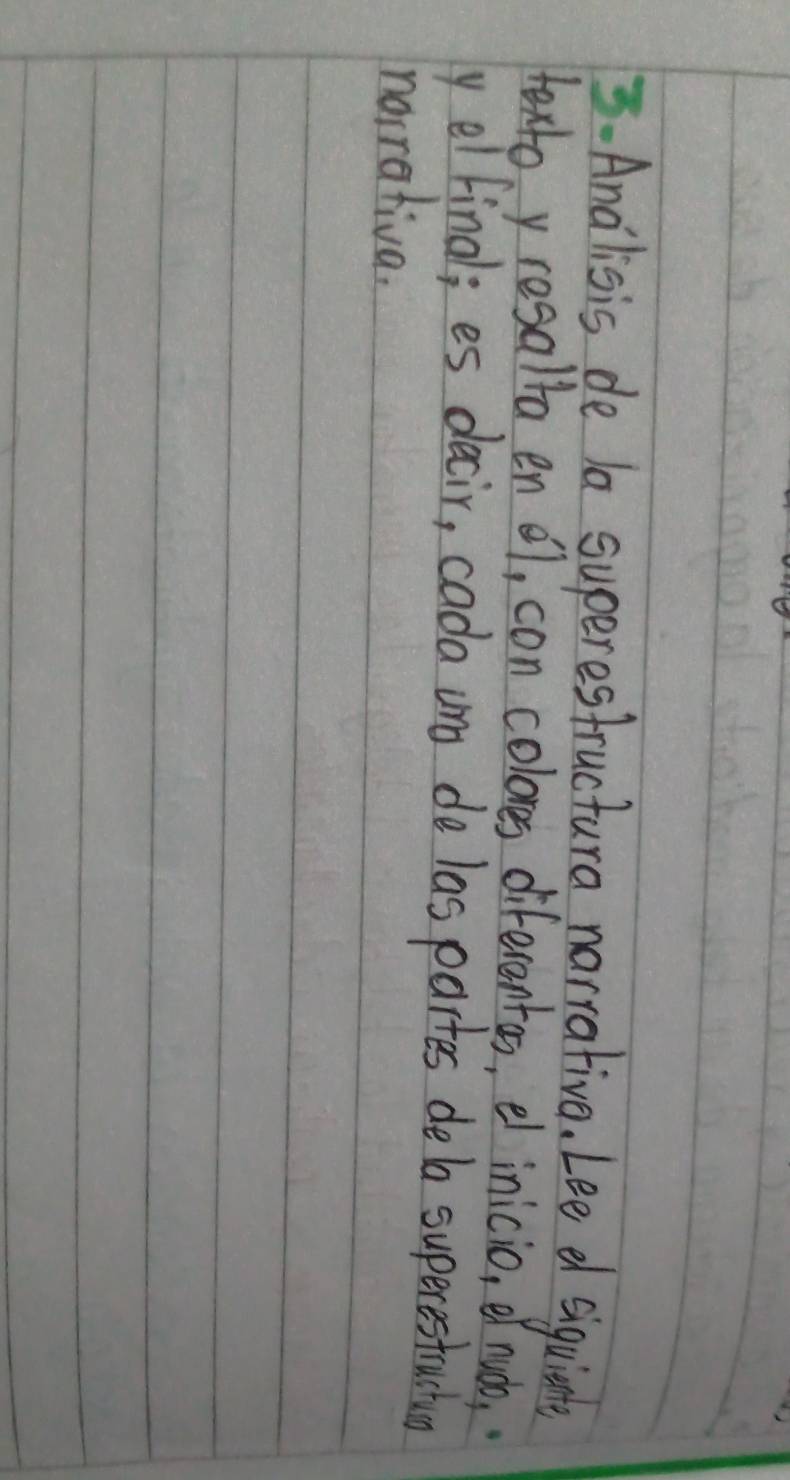 3. Análisis de la superestructura narrativa. Lee el siguiente
texto y resalta en él, con colores diferentes, el inicio, el nudo,
y el final; es decir, cada una de las partes de la superestructura
narrativa.